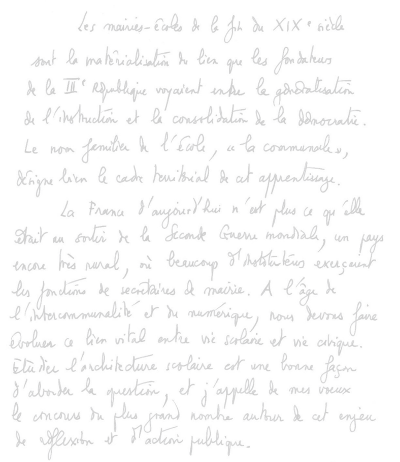 Les mairies-écoles de la fin du XIXe siècle
sont la matérialisation du lien que les fondateurs
de la IIIe République voyaient entre la généralisation
de l'instruction et la consolidation de la démocratie.
Le nom familier de l'école, « la communale »,
désigne bien le cadre territorial de cet apprentissage.
La France d'aujourd'hui n'est plus ce qu'elle
était au sortir de la Seconde Guerre mondiale, un pays
encore très rural, où beaucoup d'instituteurs exerçaient
les fonctions de secrétaires de mairie. A l'âge de
l'intercommunalité et du numérique, nous devons faire
évoluer ce lien vital entre vie scolaire et vie civique.
Etudier l'architecture scolaire est une bonne façon
d'aborder la question, et j'appelle de mes vœux
le concours du plus grand nombre autour de cet enjeu
de réflexion et d'action publique.